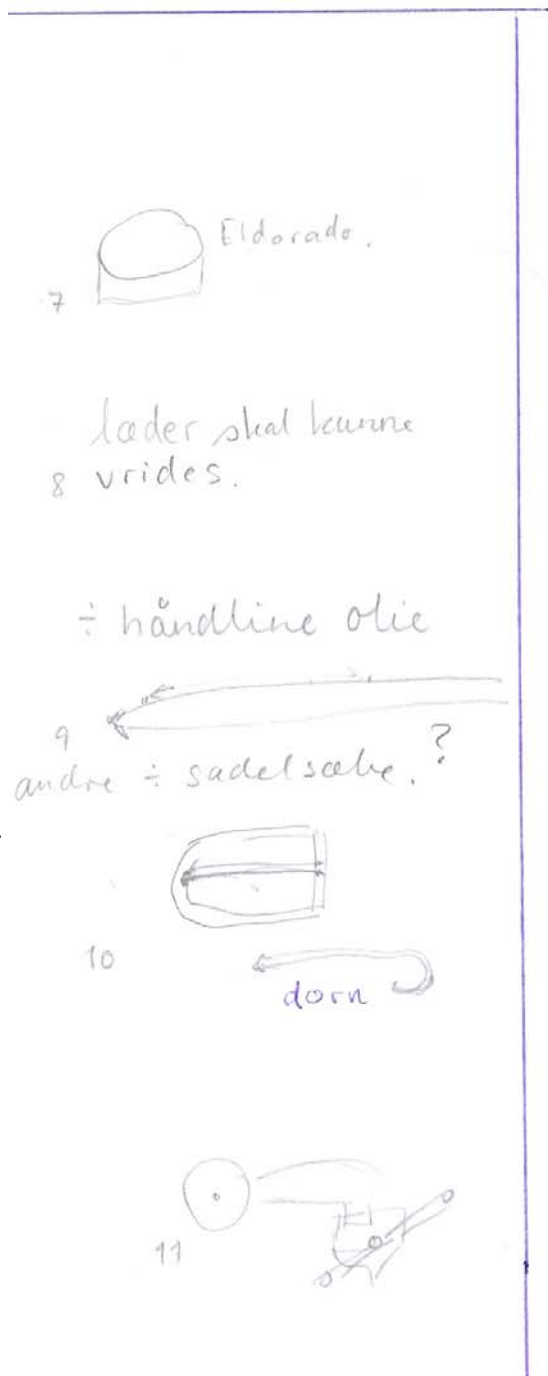 Eldorado.
7
læder skal kunne
8 vrides.
÷ håndline olie
9
andre ÷ sadelsæbe.?
10
dorn
11